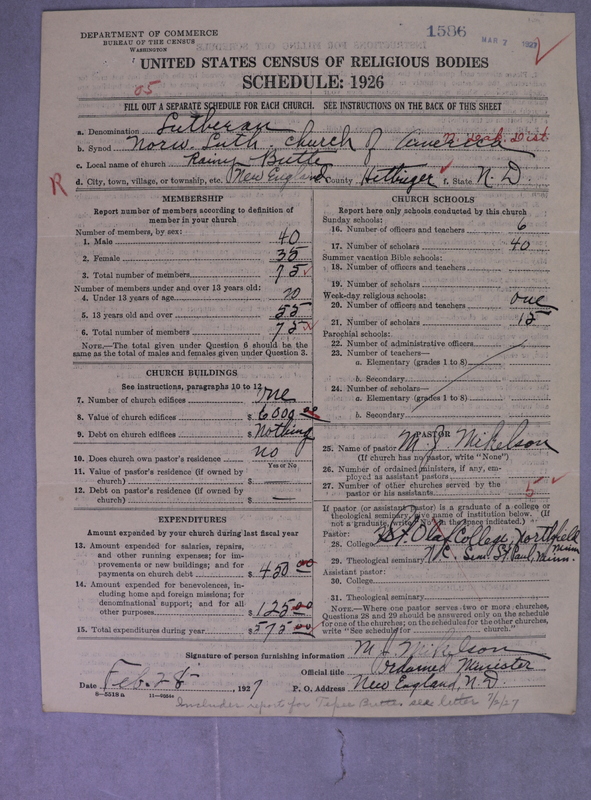 DEPARTMENT OF COMMERCE
BUREAU OF THE CENSUS
WASHINGTON
1586
MAR 7 1927
UNITED STATES CENSUS OF RELIGIOUS BODIES
SCHEDULE: 1926
05
FILL OUT A SEPARATE SCHEDULE FOR EACH CHURCH. SEE INSTRUCTIONS ON THE BACK OF THIS SHEET
a. Denomination Lutheran
b. Synod Norw. Luth. church of America N. Dak. Dist.
c. Local name of church Rainy Butte
d. City, town, village, or township, etc. (New England) e. County Hettinger f. State N. D.
R
MEMBERSHIP
Report number of members according to definition of
member in your church
Number of members, by sex:
1. Male 40
2. Female 35
3. Total number of members 75
Number of members under and over 13 years old:
4. Under 13 years of age 20
5. 13 years old and over 55
6. Total number of members 75
NOTE.—The total given under Question 6 should be the
same as the total of males and females given under Question 3.
CHURCH BUILDINGS
See instructions, paragraphs 10 to 12
7. Number of church edifices one
8. Value of church edifices $ 6000 00
9. Debt on church edifices $ Nothing
10. Does church own pastor's residence? no
Yes or No
11. Value of pastor's residence (if owned by
church) $ —
12. Debt on pastor's residence (if owned by
church) $ —
EXPENDITURES
Amount expended by your church during last fiscal year
13. Amount expended for salaries, repairs,
and other running expenses; for im-
provements or new buildings; and for
payments on church debt $ 450 00
14. Amount expended for benevolences, in-
cluding home and foreign missions; for
denominational support; and for all
other purposes $ 125 00
15. Total expenditures during year $ 575 00
CHURCH SCHOOLS
Report here only schools conducted by this church
Sunday schools:
16. Number of officers and teachers 6
17. Number of scholars 40
Summer vacation Bible schools:
18. Number of officers and teachers
19. Number of scholars
Week-day religious schools:
20. Number of officers and teachers one
21. Number of scholars 15
Parochial schools:
22. Number of administrative officers
23. Number of teachers—
a. Elementary (grades 1 to 8)
b. Secondary
24. Number of scholars—
a. Elementary (grades 1 to 8)
b. Secondary
PASTOR
25. Name of pastor M. J. Mikelson
(If church has no pastor, write "None")
26. Number of ordained ministers, if any, em-
ployed as assistant pastors
27. Number of other churches served by the
pastor or his assistants 5
If pastor (or assistant pastor) is a graduate of a college or
theological seminary, give name of institution below. (If
not a graduate, write "No" on the space indicated.)
Pastor:
28. College St. Olaf College, Northfield Minn
29. Theological seminary N. L. Sem. St. Paul, Minn.
Assistant pastor:
30. College
31. Theological seminary
NOTE.—Where one pastor serves two or more churches,
Questions 28 and 29 should be answered only on the schedule
for one of the churches; on the schedules for the other churches,
write "See schedule for church."
Signature of person furnishing information M. J. Mikelson
Official title Ordained Minister
Date Feb. 28, 1927 P. O. Address New England, N. D.
8—5518a 11—9354
Includes report for Tepee Butte see letter 7/2/27